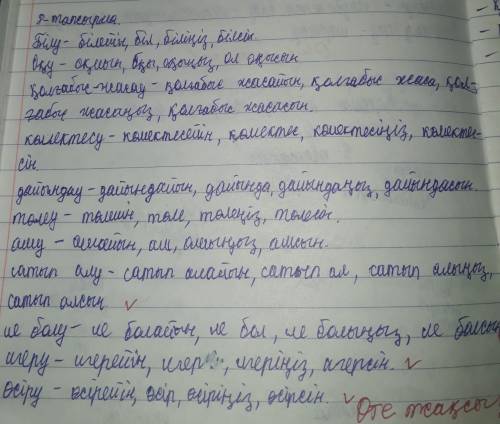 8-тапсырма.
Білу - білейін, біл, біліңіз, білсін.
Оқу - оқиын, оқы, оқыңыз, ол оқысын
Қолғабыс-жасау - қолғабыс жасайын, қолғабыс жаса, қол-
ғабыс жасаңыз, қолғабыс жасасын.
көмектесу - көмектесейін, көмектес, көмектесіңіз, көмектес-
сін.
дайындау - дайындайын, дайында, дайындаңыз, дайындасын.
төлеу - төлейін, төле, төлеңіз, төлесін.
алу - алайын, ал, алыңыз, алсын.
сатып алу - сатып алайын, сатып ал, сатып алыңыз,
сатып алсын
ие болу - ие болайын, ие бол, ие болыңыз, ие болсын
игеру - игерейін, игер, игеріңіз, игерсін.
өсіру - өсірейін, өсір, өсіріңіз, өсірсін.
Өте жақсы